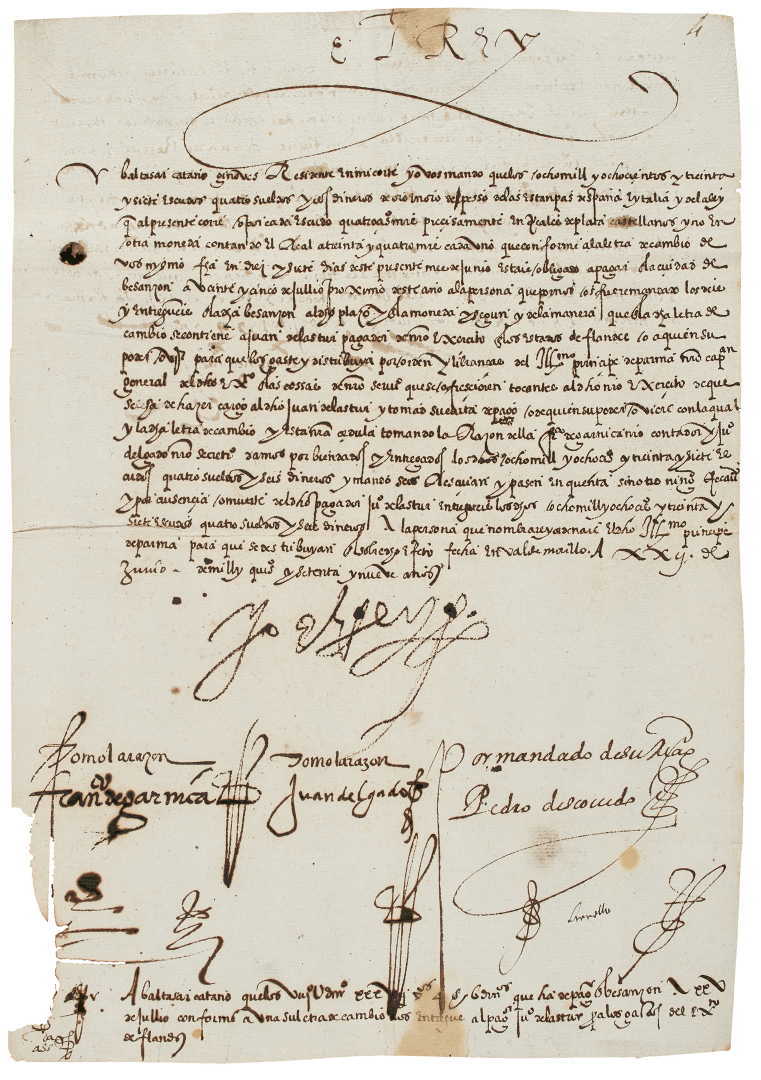 El Rey
baltasar cataño ginoves Residente en mi corte yo vos mando que los ochomill y ochocientos y treinta
y siete escudos quatro sueldos y seis dineros de oro en oro de peso de las estanpas despaña ytalia y de la ley
q̃ al presente corre o por cada escudo quatroços mrs precisamente en Reales de plata castellanos y no en
otra moneda contando el Real a treinta y quatro mrs cada uno que conforme a la letra de cambio de
vos mysmo fha en diez y siete dias deste presente mes de Junio estais obligado a pagar en la ciudad de
besanzon a veinte y cinco de Jullio proximo deste año a la persona que por nos os fuere mandado los deis
y entregueis en la dha besanzon al dho plazo y en la moneda y segun y de la manera que en la dha letra de
cambio se contiene a juan de lastur pagador de nro exercito en los estados de flandes o a quien su
poder oviere para que los gaste y distribuya por orden y libranças del Illmo principe de parma nro capan
general del dho exto en las cossas de nro servio que se ofrescieren tocantes al dho nro exercito de que
se le a de hazer cargo al dho Juan de lastur y tomad su carta de pago o de quien su poder oviere con la qual
y la dha letra de cambio y esta nra cedula tomando la Razon della franco de garnica nro contador y Juo
delgado nro secreto damos por bien dados y entregados los dhos ochomill y ochoços y treinta y siete es
cudos quatro sueldos y seis dineros y mando se os Resciuan y pasen en quenta sin otro ningo Recaudo
y por ausencia o muerte del dho pagador juo de lastur entregueis los dhos ochomill y ochoços y treinta y
siete escudos quatro sueldos y seis dineros A la persona que nombrare y ordenare el dho Illmo principe
de parma para que se destribuyan en el dho efeto fecha en valdemorillo. A XXij. de
Junio de mill y quios y setenta y nueve años
Yo el Rey
Tomo la razon
franco de garnica
Tomo la razon
Juan delgado
Por mandado de su Magd
Pedro descovedo
A baltasar cataño que los viijU dcccxxxvij esos 4 ss 6 dinos que ha de pagar en besanzon a XXV
de Jullio conforme a una su letra de cambio los entregue al pagor juo de lastur para los gastos del exto
de flandes